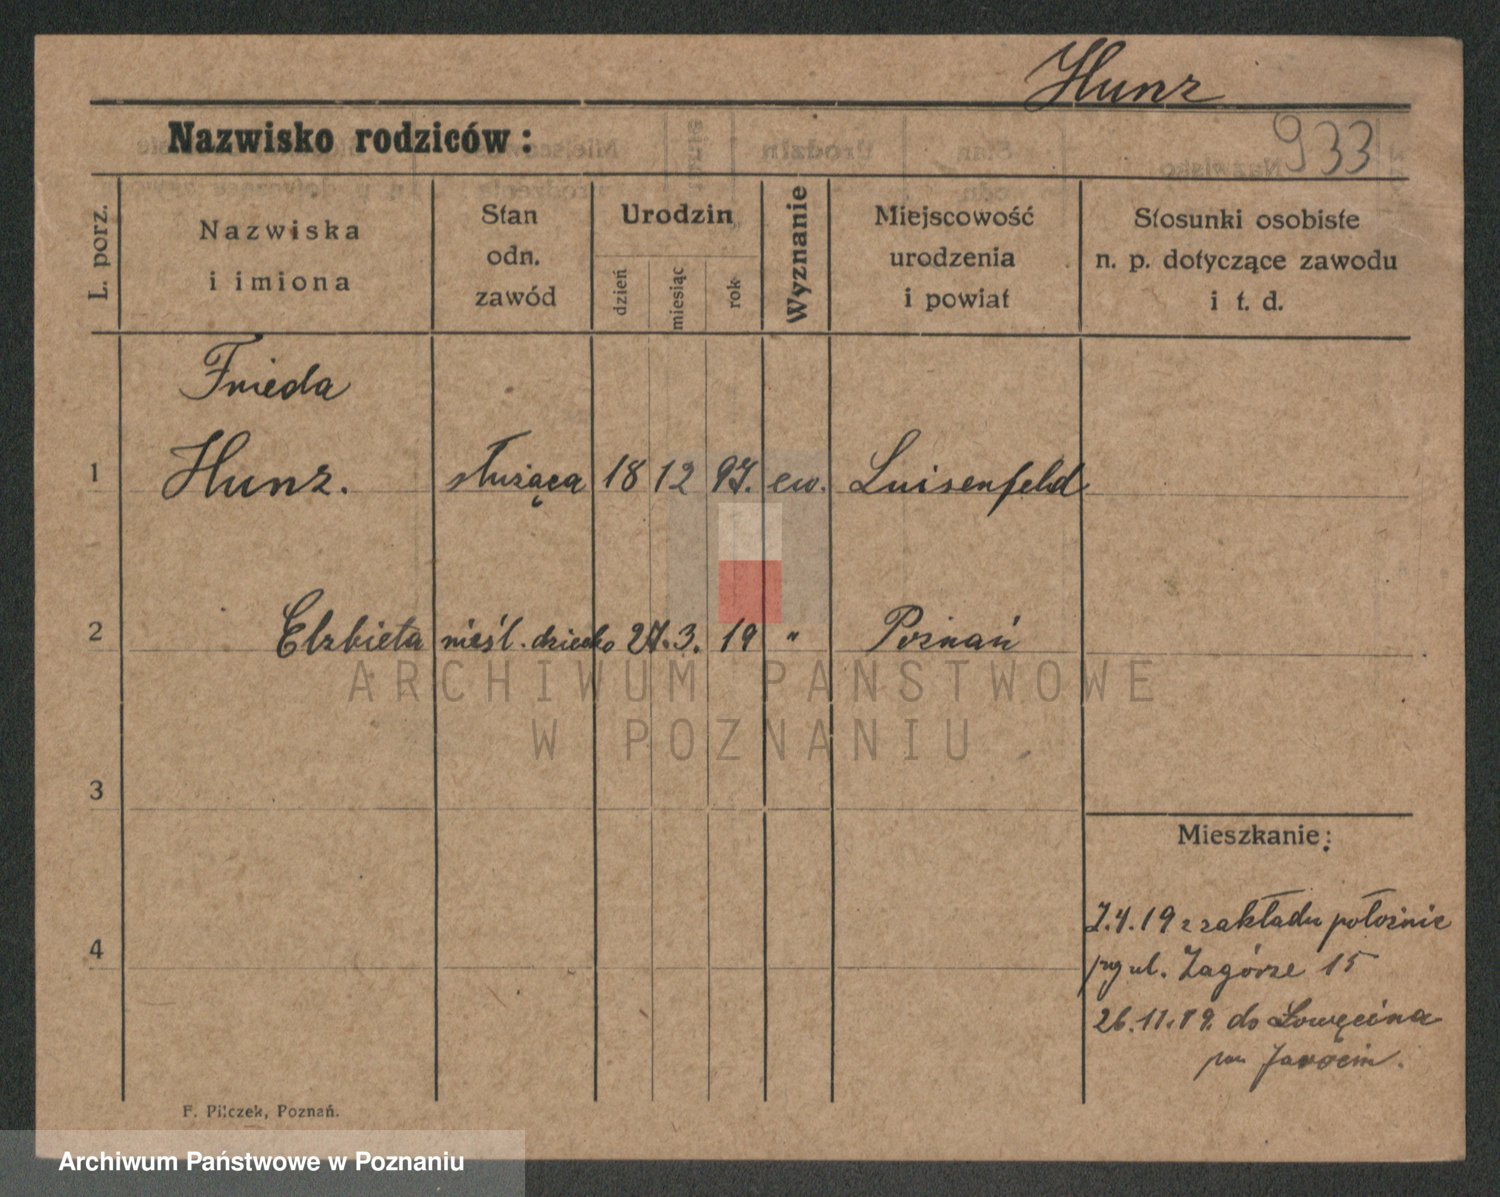 Hunz
933
Nazwisko rodziców:
L. porz.
Nazwiska
i imiona
Stan
odn.
zawód
Urodzin
dzień
miesiąc
rok
Wyznanie
Miejscowość
urodzenia
i powiat
Stosunki osobiste
n. p. dotyczące zawodu
i t. d.
Frieda
1 Hunz. służąca 18 12 97. ew. Luisenfeld
2 Elzbieta nieśl. dziecko 27. 3. 19 " Poznań
ARCHIWUM PAŃSTWOWE
W POZNANIU
3
Mieszkanie:
7.4.19 z zakładu położnic
przy ul. Zagórze 15
4
26.11.19. do Łowęcina
pow Jarocin.
F. Pilczek, Poznań.
Archiwum Państwowe w Poznaniu